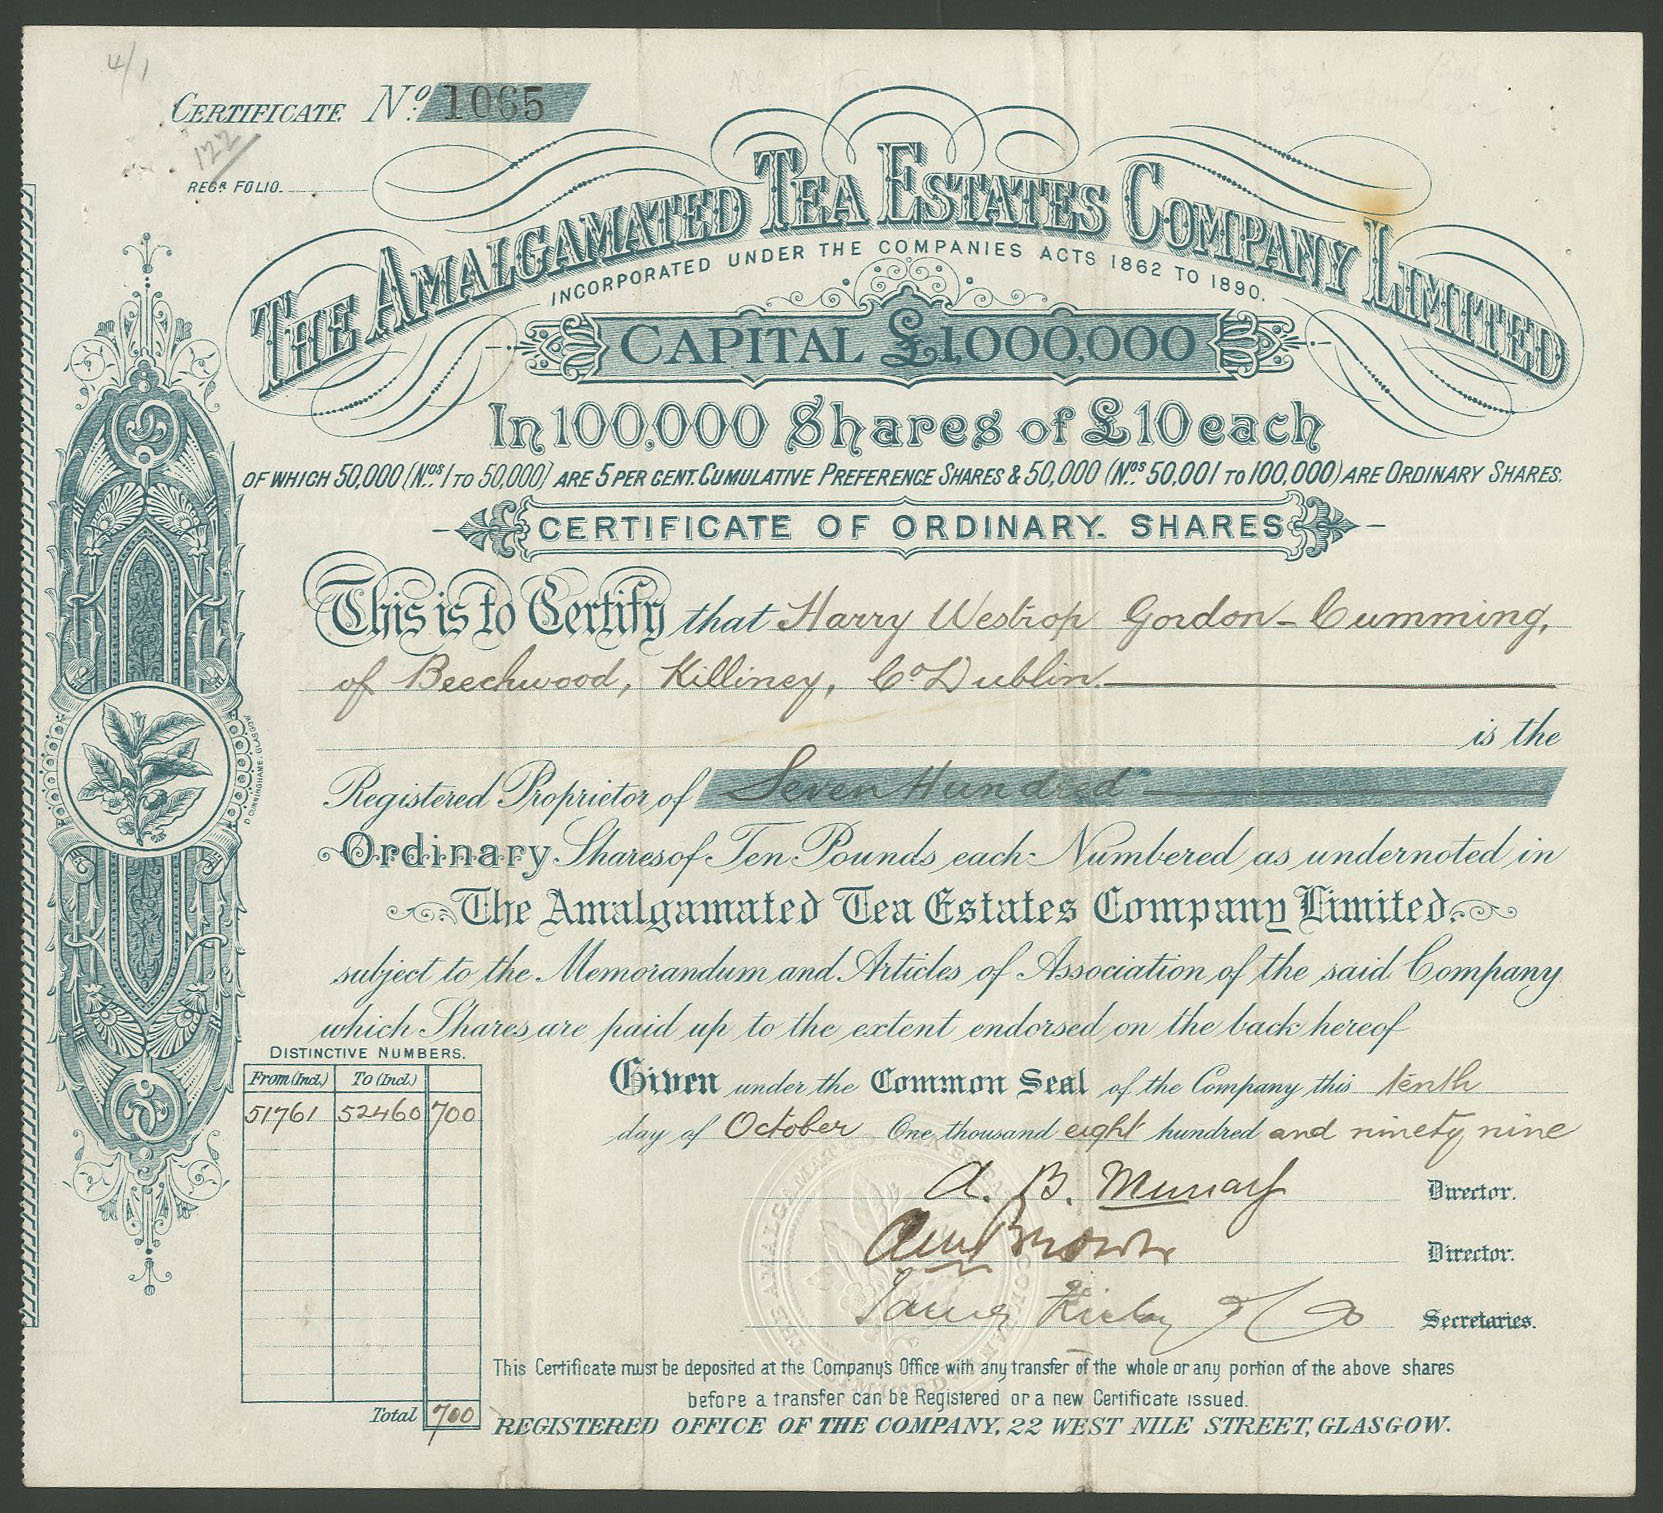 4/1
CERTIFICATE No. 1065
122
REGR FOLIO.
THE AMALGAMATED TEA ESTATES COMPANY LIMITED
INCORPORATED UNDER THE COMPANIES ACTS 1862 TO 1890.
CAPITAL £1,000,000
In 100,000 Shares of £10 each
OF WHICH 50,000 (Nos. 1 TO 50,000) ARE 5 PER CENT. CUMULATIVE PREFERENCE SHARES & 50,000 (Nos. 50,001 TO 100,000) ARE ORDINARY SHARES.
CERTIFICATE OF ORDINARY. SHARES
This is to Certify that Harry Westrop Gordon-Cumming,
of Beechwood, Killiney, Co Dublin.
is the
Registered Proprietor of Seven Hundred
Ordinary Shares of Ten Pounds each Numbered as undernoted in
The Amalgamated Tea Estates Company Limited.
subject to the Memorandum and Articles of Association of the said Company
which Shares are paid up to the extent endorsed on the back hereof
DISTINCTIVE NUMBERS.
From (Incl.) To (Incl.)
51761 52460 700
Total 700
Given under the Common Seal of the Company this tenth
day of October One thousand eight hundred and ninety nine
A. B. Murray Director.
Brown Director.
James Finlay & Co Secretaries.
THE AMALGAMATED TEA ESTATES COMPANY LIMITED
This Certificate must be deposited at the Company's Office with any transfer of the whole or any portion of the above shares
before a transfer can be Registered or a new Certificate issued.
REGISTERED OFFICE OF THE COMPANY, 22 WEST NILE STREET, GLASGOW.
D. CUNNINGHAME, GLASGOW